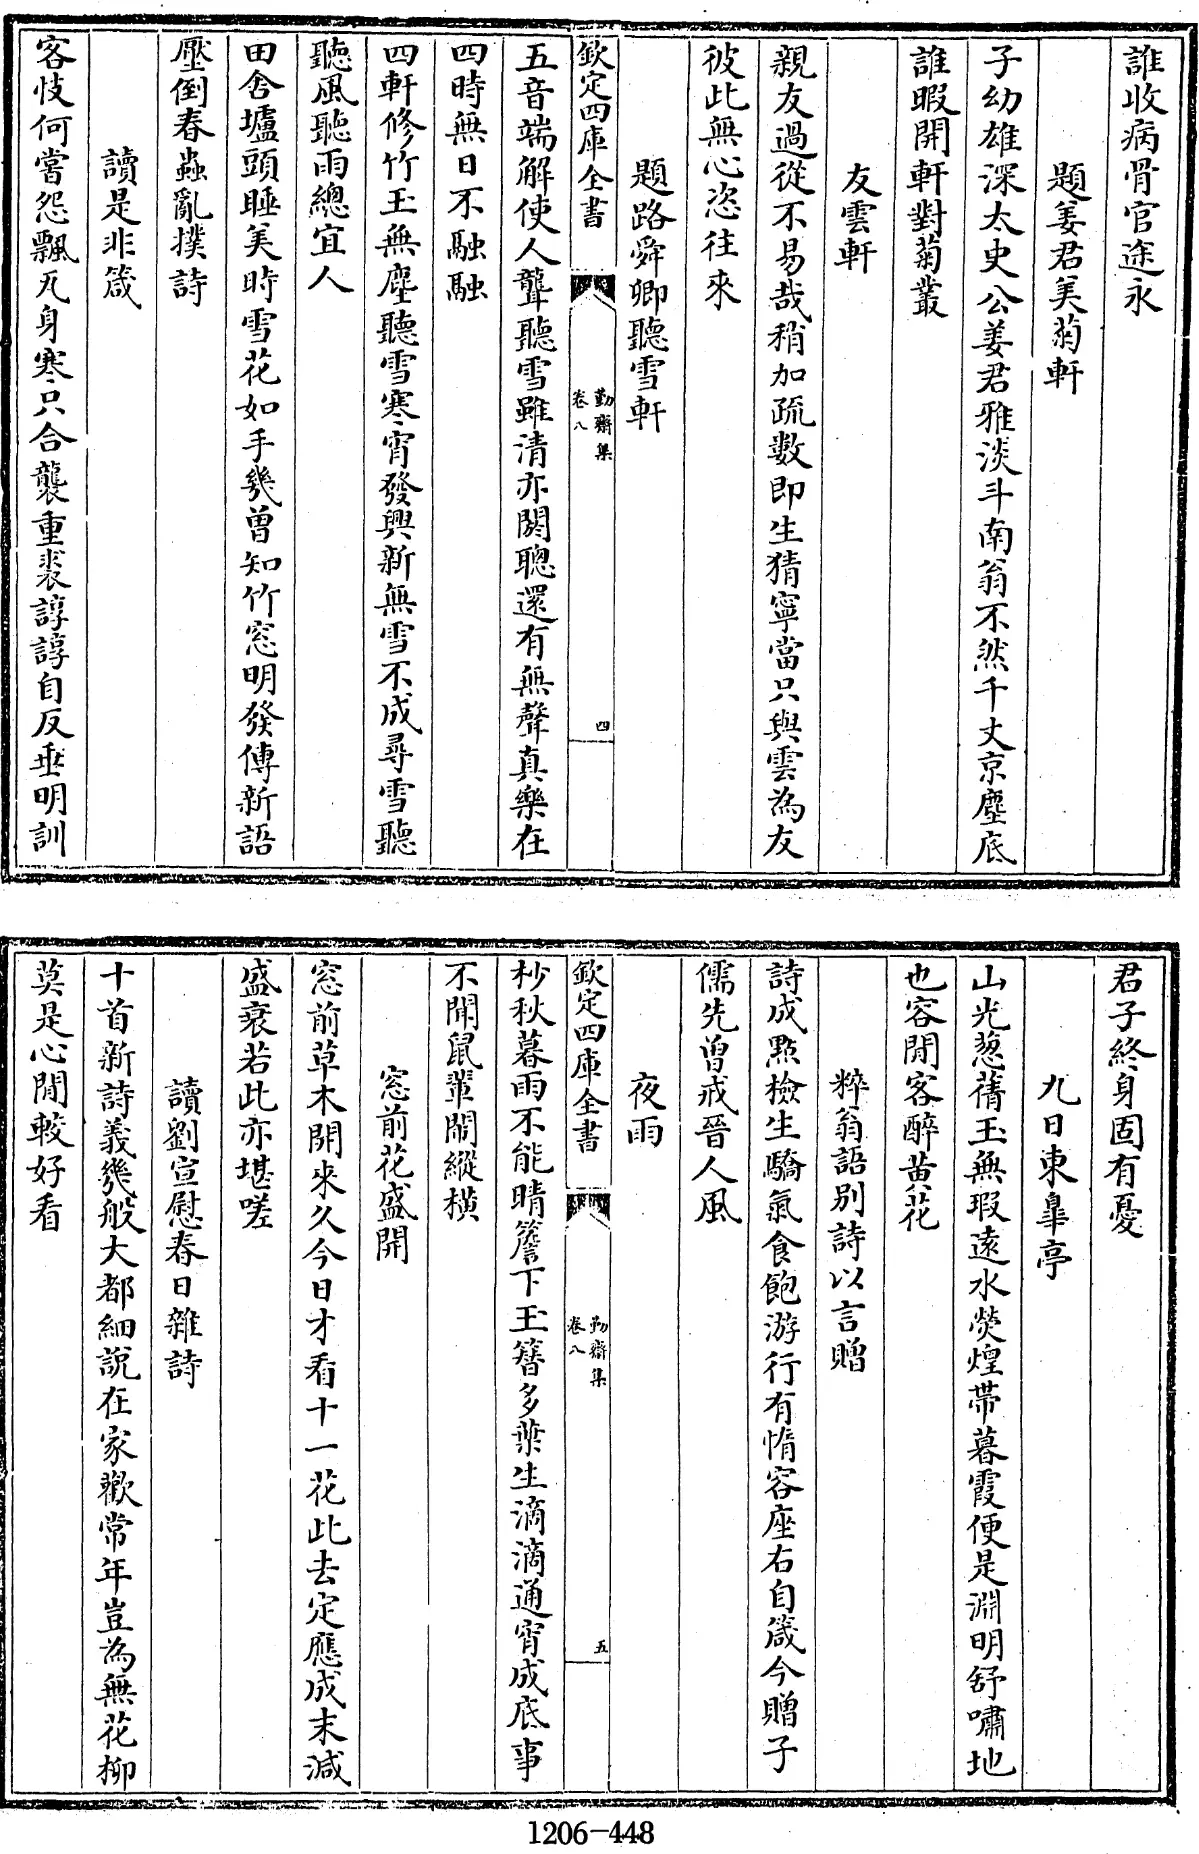 誰收病骨官途永
題姜君美菊軒
子幼雄深太史公姜君雅淡斗南翁不然千丈京塵底
誰暇開軒對菊叢
友雲軒
親友過從不易哉稍加疏數即生猜寧當只與雲為友
彼此無心恣往來
題路舜卿聽雪軒
欽定四庫全書
勤齋集
卷八
四
五音端解使人聾聽雪雖清亦閡聰還有無聲真樂在
四時無日不融融
四軒修竹玉無塵聽雪寒宵發興新無雪不成尋雪聽
聽風聽雨總宜人
田舍壚頭睡美時雪花如手幾曾知竹窓明發傳新語
壓倒春蟲亂撲詩
讀是非箴
客忮何嘗怨飄瓦身寒只合襲重裘諄諄自反垂明訓
君子終身固有憂
九日東臯亭
山光葱蒨玉無瑕遠水熒煌帶暮霞便是淵明舒嘯地
也容閒客醉黄花
粹翁語别詩以言贈
詩成點檢生驕氣食飽游行有惰容座右自箴今贈子
儒先曽戒晉人風
夜雨
欽定四庫全書
勤齋集
卷八
五
杪秋暮雨不能晴簷下玉簪多葉生滴滴通宵成底事
不聞鼠輩鬧縱橫
窓前花盛開
窓前草木開來久今日才看十一花此去定應成末減
盛衰若此亦堪嗟
讀劉宣慰春日雜詩
十首新詩義幾般大都細說在家歡常年豈為無花柳
莫是心閒較好看
1206-448